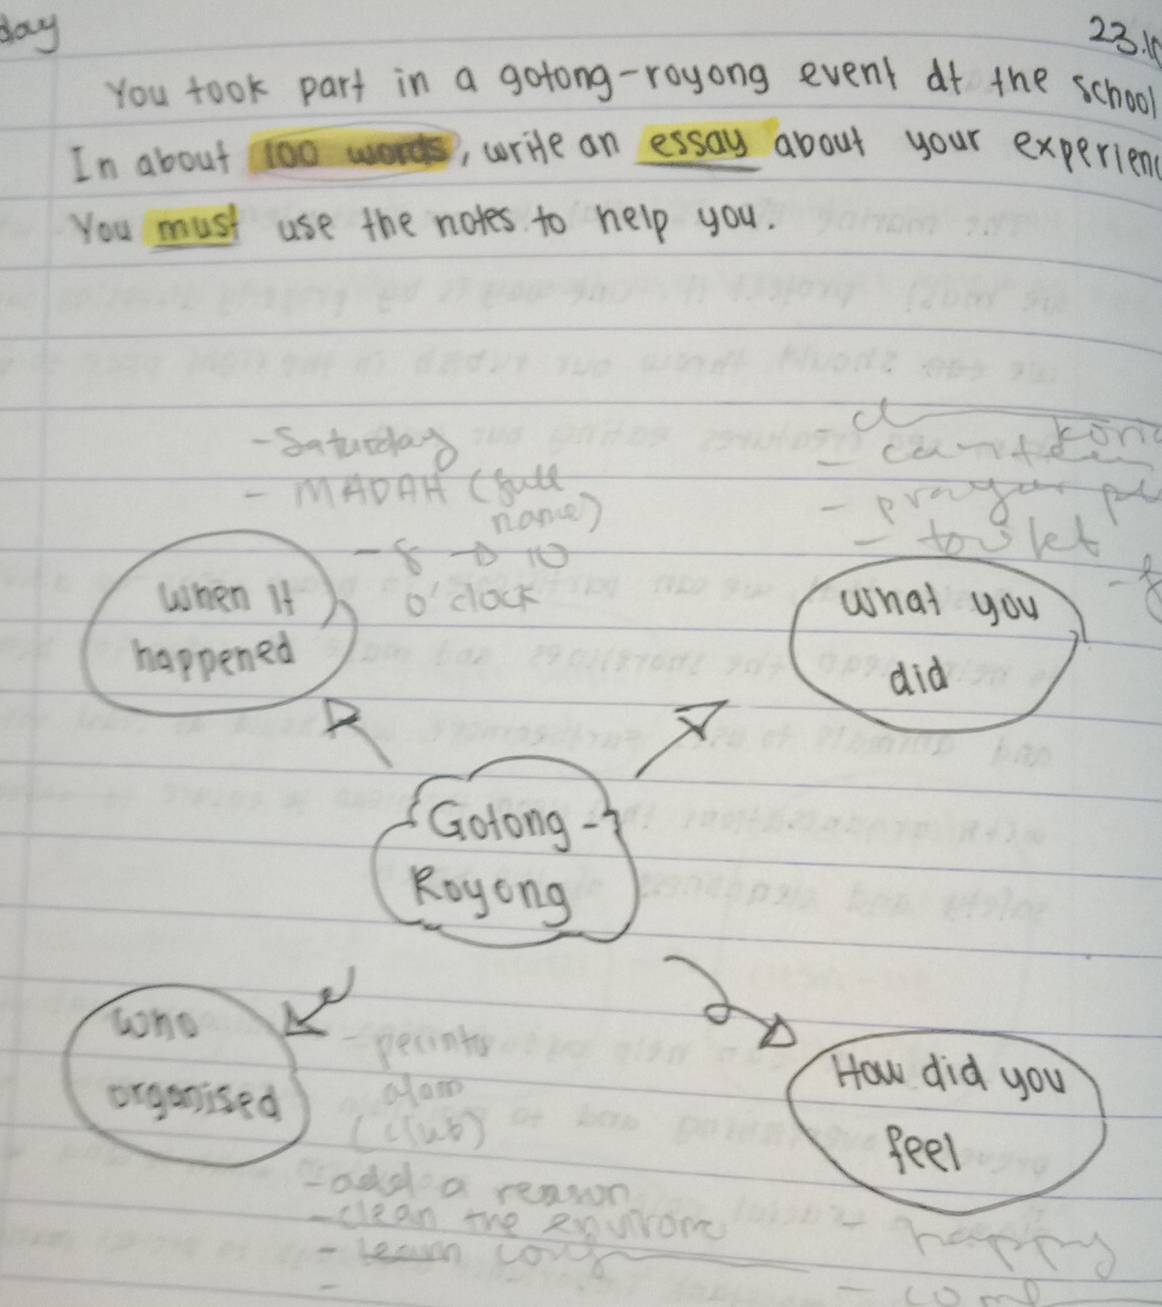 day
23.10
You took part in a gotong-royong event at the school
In about 100 words, write an essay about your experienc
You must use the notes to help you.
- Saturday
- MADAH (full
name)
- 8 → 10
o'clock
- canteen
- toilet
When it
happened
What you
did
Gotong-
Royong
Who
organised
- perinto
alam
(club)
- add a reason
- clean the environ
- learn
How did you
feel
- happy